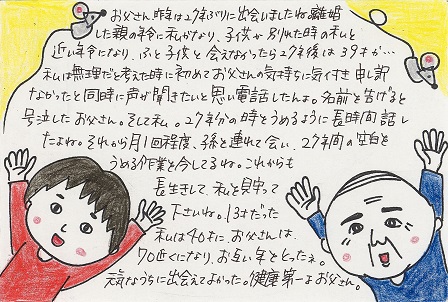 お父さん昨年は27年ぶりに出会いましたね。離婚
した親の年令に私がなり、子供が別れた時の私と
近い年令になり、ふと子供と会えなかったら27年後は39才か…
私は無理だと考えた時に初めてお父さんの気持ちに気付き申し訳
なかったと同時に声が聞きたいと思い電話したんよ。名前を告げると
号泣したお父さん。そして私。27年分の時をうめるように長時間話し
たよね。それから月1回程度、孫を連れて会い、27年間の空白を
うめる作業を今してるね。これからも
長生きして、私を見守って
下さいね。13才だった
私は40才に、お父さんは、
70近くになり、お互い年をとったネ。
元気なうちに出会えてよかった。健康第一よお父さん。